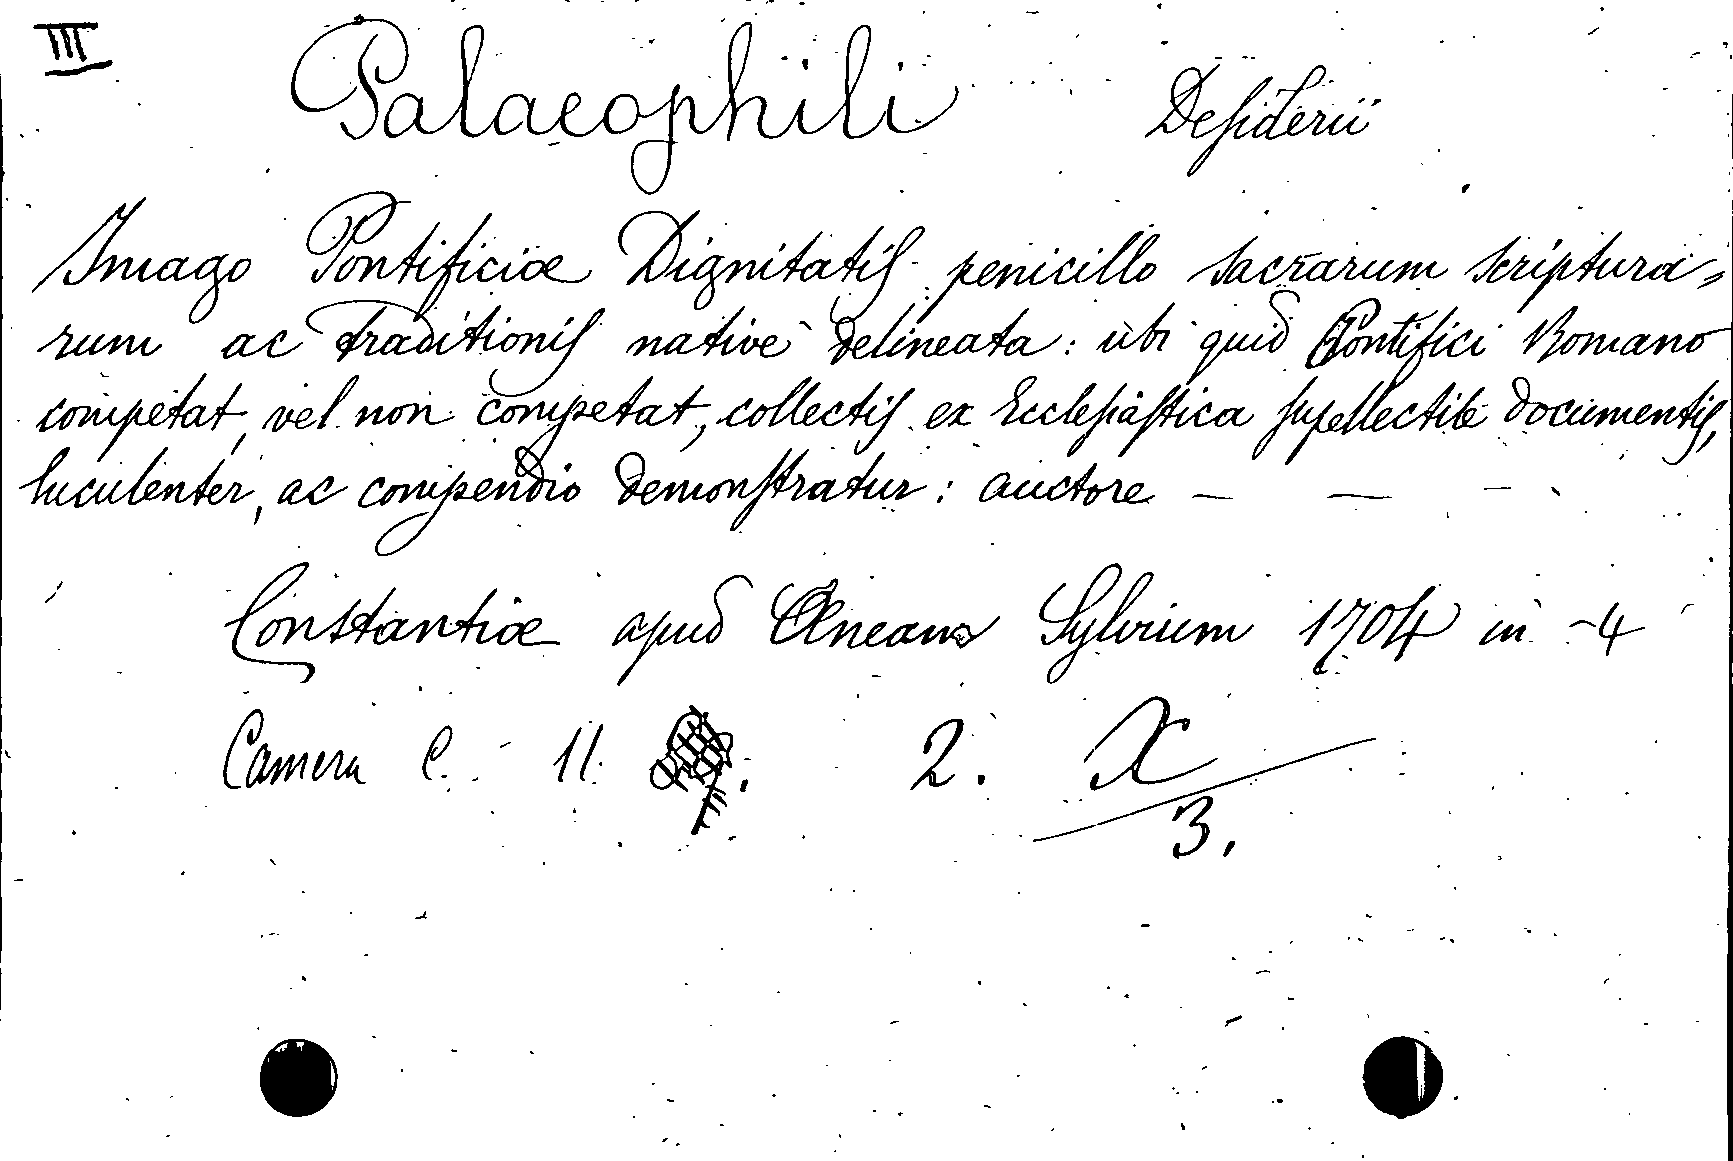 III
Palaeophili Desiderii
Imago Pontificiæ Dignitatis penicillo sacrarum scriptura=
rum ac traditionis nativè delineata: ubi quid Pontifici Romano
competat, vel non competat, collectis ex Ecclesiastica supellectile documentis,
luculenter, ac compendio demonstratur: auctore — — —
Constantiæ apud Æneam Sylvium 1704 in -4
Camera C. 11. 2. X
3.